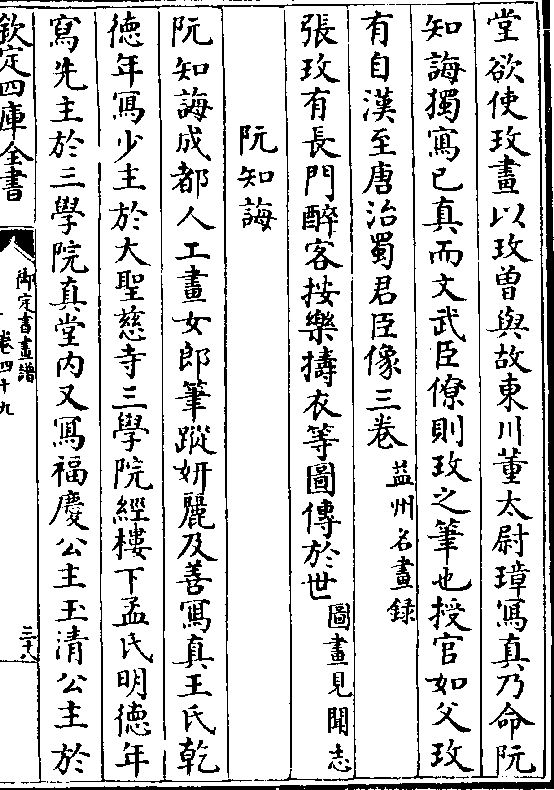 堂欲使玫畫以玫曽與故東川董太尉璋寫真乃命阮
知誨獨寫已真而文武臣僚則玫之筆也授官如父玫
有自漢至唐治蜀君臣像三卷益州名畫録
張玫有長門醉客按樂擣衣等圖傳於世圖畫見聞志
阮知誨
阮知誨成都人工畫女郎筆蹤妍麗及善寫真王氏乾
徳年寫少主於大聖慈寺三學院經樓下孟氏明徳年
寫先主於三學院真堂内又寫福慶公主玉清公主於
欽定四庫全書
御定書畫譜
卷四十九
三十八